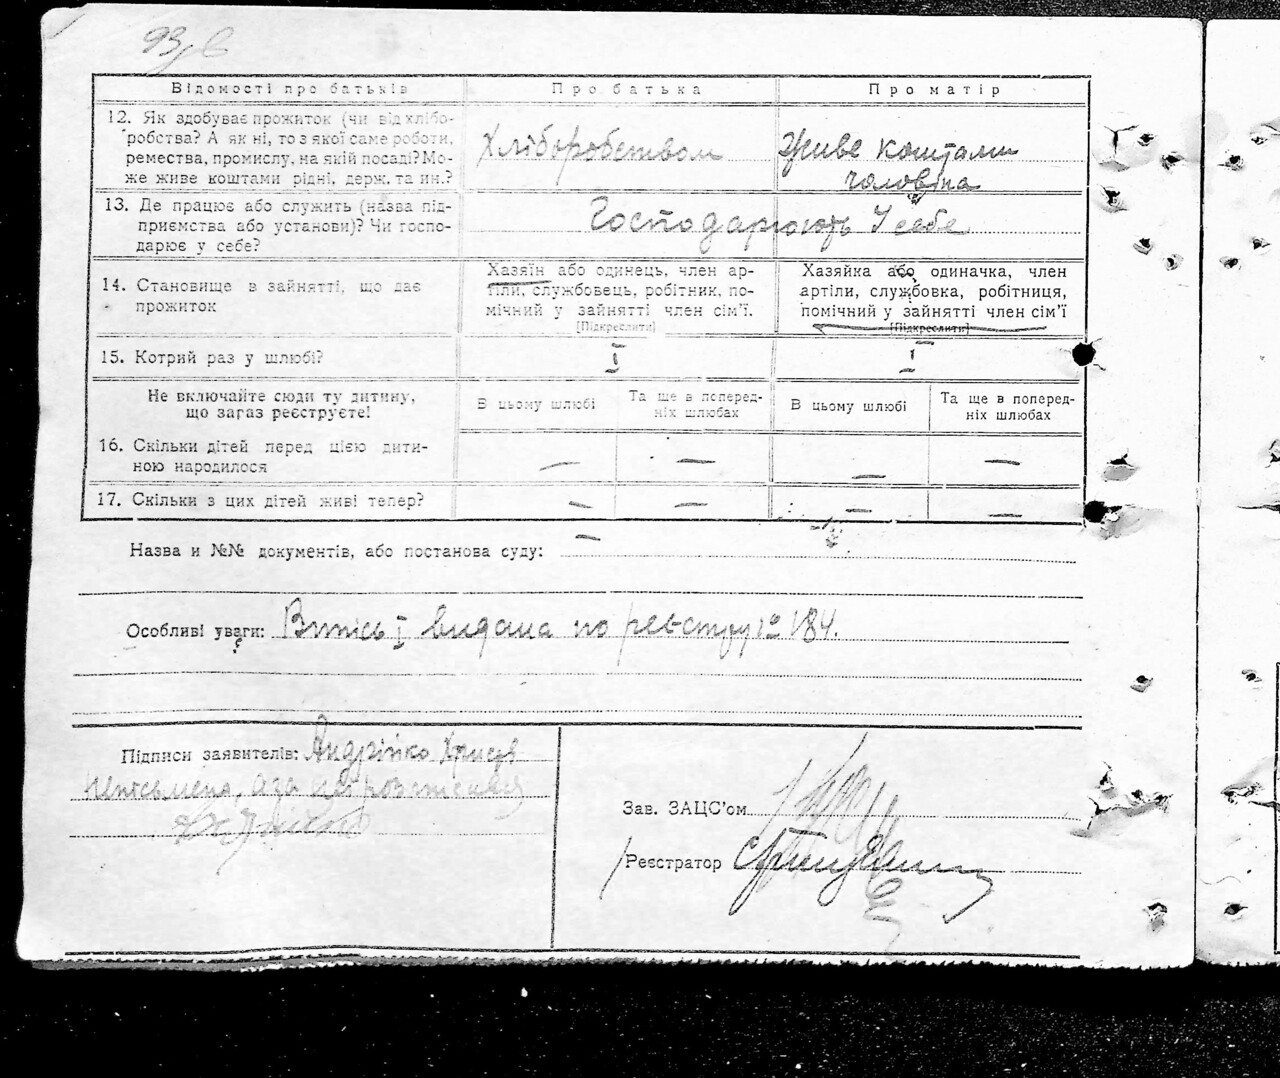 93, в
Відомості про батьків
Про батька
Про матір
12. Як здобуває прожиток (чи від хлібо-
робства? А як ні, то з якої саме роботи,
ремества, промислу, на якій посаді? Мо-
же живе коштами рідні, держ. та ин.?
Хліборобством
Живе коштами
чоловіка
13. Де працює або служить (назва під-
приємства або установи)? Чи госпо-
дарює у себе?
Господарюють у себе
14. Становище в зайнятті, що дає
прожиток
Хазяїн або одинець, член ар-
тіли, службовець, робітник, по-
мічний у зайнятті член сім'ї.
[Підкреслити]
Хазяйка або одиначка, член
артіли, службовка, робітниця,
помічний у зайнятті член сім'ї
[Підкреслити]
15. Котрий раз у шлюбі?
I
I
Не включайте сюди ту дитину,
що загаз реєструєте!
В цьому шлюбі
Та ще в поперед-
ніх шлюбах
В цьому шлюбі
Та ще в поперед-
ніх шлюбах
16. Скільки дітей перед цією дити-
ною народилося
— — — —
17. Скільки з цих дітей живі тепер?
— — — —
Назва и №№ документів, або постанова суду: —
Особливі уваги: Витісь I видана по реєстру за 184.
Підписи заявителів: Андрійко
неписьмена, а за
Зав. ЗАЦС'ом
Реєстратор